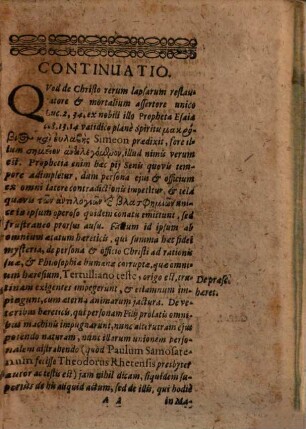 CONTINUATIO.
QVod de Christo rerum lapsarum restau-
ratore & mortalium assertore unico
Luc. 2, 34. ex nobili illo Propheta Esaia
c. 8. 13. 14 vatidico plane Spiritu
Simeon prædixit, fore il-
lum σημεῖον ἀντιλεγόμενον, illud nimis verum
est. Prophetia enim hæc pij Senis quovis tem-
pore adimpletur, dum persona ejus & officium
ex omni latere contradictionis impetitur, & tela
quævis τῶν ἀντιλογιῶν & βλασφημιῶν
in ipsum operoso quodam conatu emittunt, sed
frustraneo prorsus ausu. Factum id ipsum ab
omnium ætatum hæreticis, qui summa hæc fidei
mysteria, de persona & officio Christi ad rationis
suæ, & Philosophiæ humanæ corruptæ, quæ omni-
um hæresium, Tertulliano teste, origo est,
exigentes impegerunt, & etiamnum im-
pingunt, cum æterna animarum jactura. De ve-
teribus hæreticis, qui personam Filij prolatis omni-
bus machinis impugnarunt, nunc alteram ejus
potendo naturam, nunc illarum unionem perso-
nalem astruendo (quod Paulium Samosate-
num fecisse Theodorus Rhetensis presbyter
autor actestis est) jam nihil dicam, siquidem sa-
de his aliquid actum, sed de illis, qui hodie
De præsc.
hæret.
A 2 in Ma-